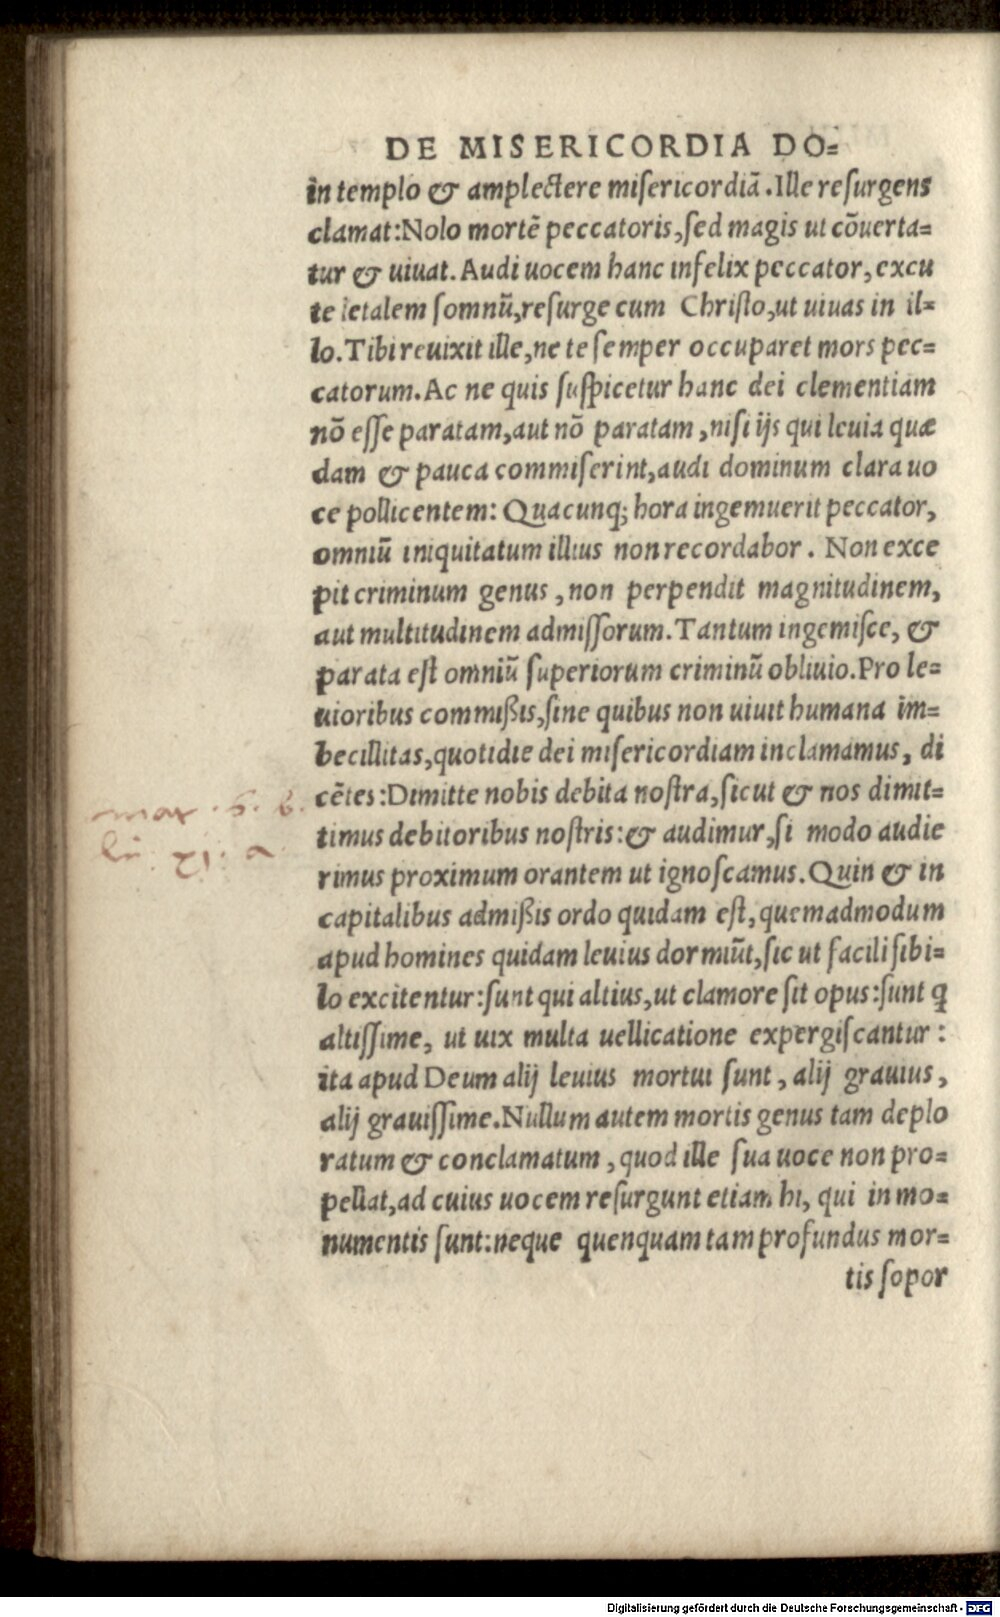 DE MISERICORDIA DO=
in templo & amplectere miſericordiā. Ille reſurgens
clamat: Nolo mortē peccatoris, ſed magis ut cōuerta=
tur & uiuat. Audi uocem hanc infelix peccator, excu
te letalem ſomnū, reſurge cum Chriſto, ut uiuas in il=
lo. Tibi reuixit ille, ne te ſemper occuparet mors pec=
catorum. Ac ne quis ſuſpicetur hanc dei clementiam
nō eſſe paratam, aut nō paratam, niſi ijs qui leuia quæ
dam & pauca commiſerint, audi dominum clara uo
ce pollicentem: Quacunq; hora ingemuerit peccator,
omniū iniquitatum illius non recordabor. Non exce
pit criminum genus, non perpendit magnitudinem,
aut multitudinem admiſſorum. Tantum ingemiſce, &
parata eſt omniū ſuperiorum criminū obliuio. Pro le=
uioribus commißis, ſine quibus non uiuit humana im=
becillitas, quotidie dei miſericordiam inclamamus, di
cētes: Dimitte nobis debita noſtra, ſicut & nos dimit=
timus debitoribus noſtris: & audimur, ſi modo audie
rimus proximum orantem ut ignoſcamus. Quin & in
capitalibus admißis ordo quidam eſt, quemadmodum
apud homines quidam leuius dormiūt, ſic ut facili ſibi=
lo excitentur: ſunt qui altius, ut clamore ſit opus: ſunt q
altiſſime, ut uix multa uellicatione expergiſcantur:
ita apud Deum alij leuius mortui ſunt, alij grauius,
alij grauiſſime. Nullum autem mortis genus tam deplo
ratum & conclamatum, quod ille ſua uoce non pro=
pellat, ad cuius uocem reſurgunt etiam hi, qui in mo=
numentis ſunt: neque quenquam tam profundus mor=
tis ſopor
Digitalisierung gefördert durch die Deutsche Forschungsgemeinschaft - DFG